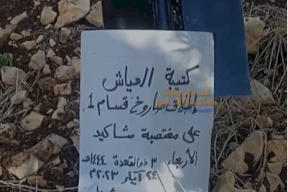 كتيبة العياش
إطلاق صاروخ قسام 1
على مغتصبة شاكيد
الأربعاء ٣ ذو القعدة ١٤٤٤هـ
٢٤ آيار ٢٠٢٣